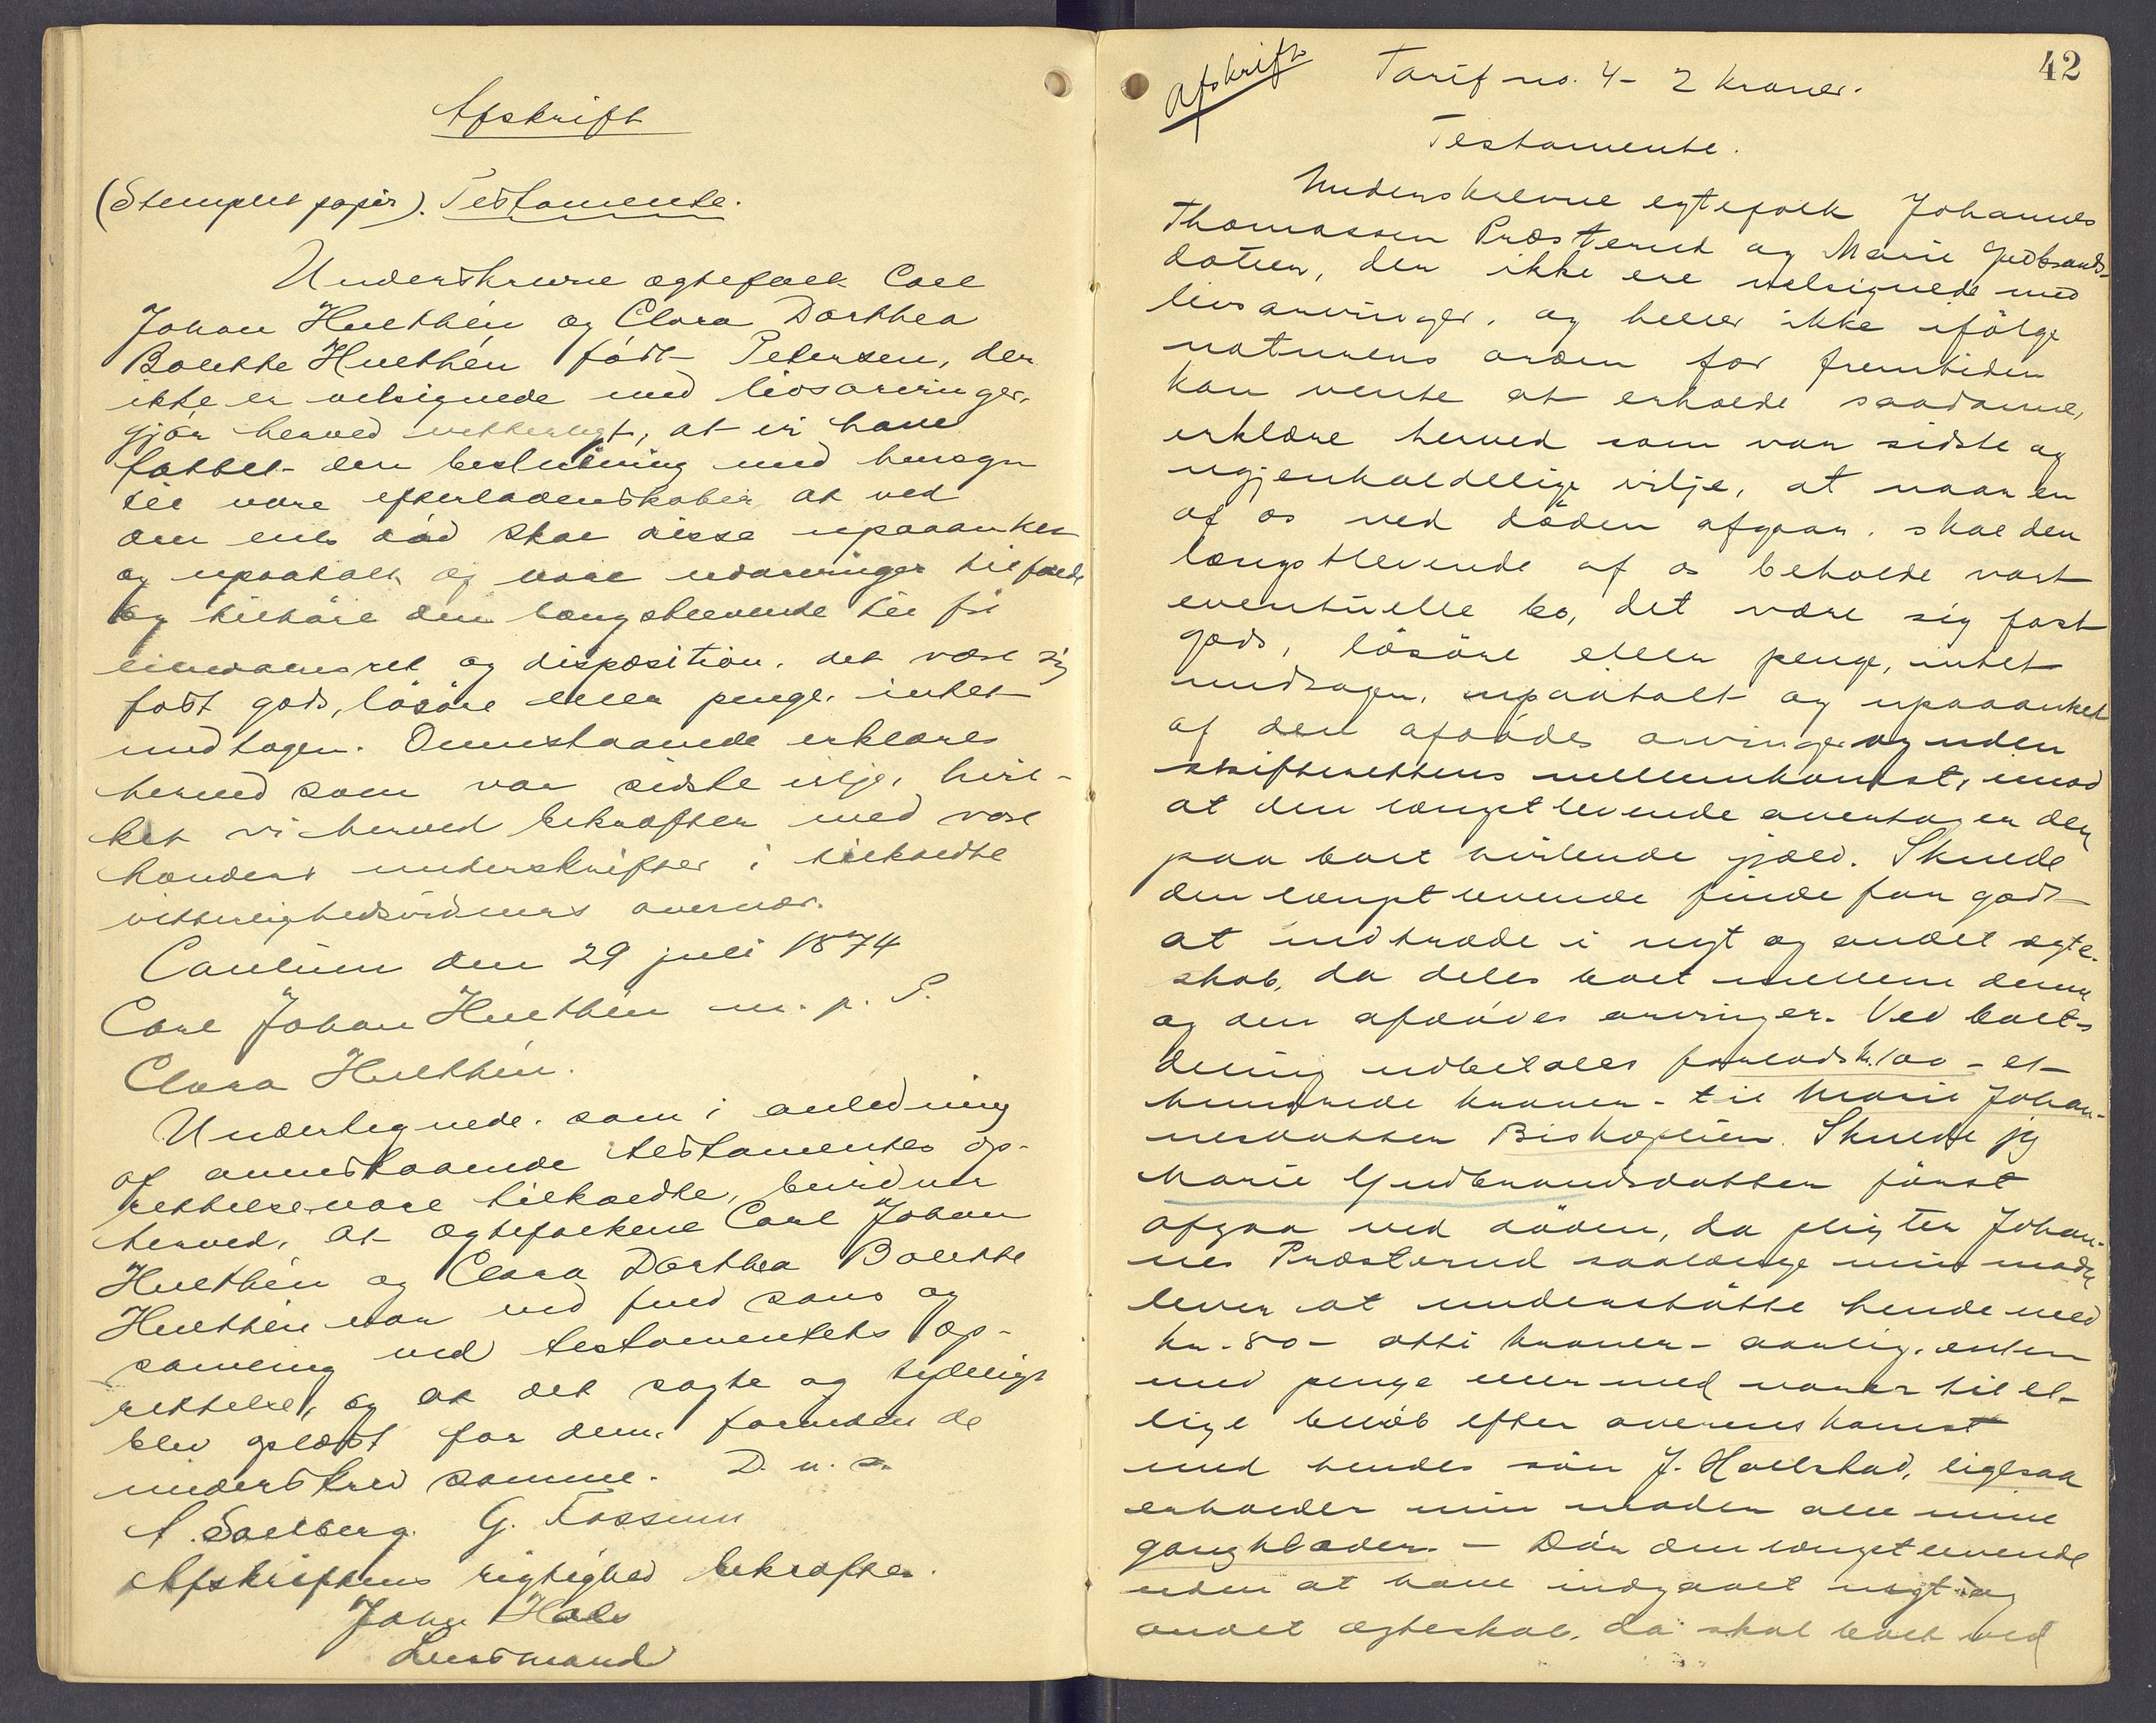 Afskrift
(Stemplet papir). Testamente.
Underskrevne ægtefolk Carl
Johan Hulthén og Clara Dorthea
Bolette Hulthén født Petersen, der
ikke er velsignede med livsarvinger,
gjør herved vitterligt, at vi have
fattet den beslutning med hensyn
til vore efterladenskaber, at ved
den enes død skal disse upaaanket
og upaatalt af vore udarvinger tilfalde
og tilhøre den længstlevende til fri
eiendomsret og disposition, det være sig
fast gods, løsøre eller penge, intet
undtagen. Ovenstaaende erklæres
herved som vor sidste vilje, hvil-
ket vi herved bekræfter med vore
hænders underskrifter i tilkaldte
vitterlighedsvidners overvær.
den 29 juli 1874
Carl Johan Hulthén m. p. S.
Clara Hulthén.
Undertegnede, som i anledning
af ovenstaaende testamentes op-
rettelse vare tilkaldte, bevidner
herved, at ægtefolkene Carl Johan
Hulthén og Clara Dorthea Bolette
Hulthén var ved fuld sans og
samling ved testamentets op-
rettelse, og at det sagte og tydeligt
blev oplæst for dem, forinden de
underskrev samme. D. u. s.
A. Solberg. G. Fossum
Afskriftens rigtighed bekræftes.
Johs Hals
Lensmand
42
Afskrift
Tarif no. 4 - 2 kroner.
Testamente.
Underskrevne egtefolk Johannes
Thomassen Præsterud og Marie Gudbrands-
datter, der ikke ere velsignede med
livsarvinger, og heller ikke ifølge
naturens orden for fremtiden
kan vente at erholde saadanne,
erklære herved som vor sidste og
ugjenkaldelige vilje, at naar en
af os ved døden afgaar, skal den
længstlevende af os beholde vort
eventuelle bo, det være sig fast
gods, løsøre eller penge, intet
undtagen, upaatalt og upaaanket
af den afdødes arvinger og uden
skifterettens mellemkomst, imod
at den længstlevende overtager den
paa boet hvilende gjæld. Skulde
den længstlevende finde for godt
at indtræde i nyt og andet ægte-
skab, da deles boet mellem denne
og den afdødes arvinger. Ved boets
deling udbetales forlods kr. 100 - et
hundrede kroner - til Marie Johan-
nesdatter Bishoplien. Skulde jeg
Marie Gudbrandsdatter først
afgaa ved døden, da pligter Johan-
nes Præsterud saalænge min moder
lever at understøtte hende med
kr. 80 - otti kroner - aarlig, enten
med penge eller med varer til et
lige beløb efter overenskomst
med hendes søn J. Hallstad, ligesaa
erholder min moder alle mine
gangklæder. - Dør den længstlevende
uden at have indgaaet nyt og
andet ægteskab, da skal boet ved